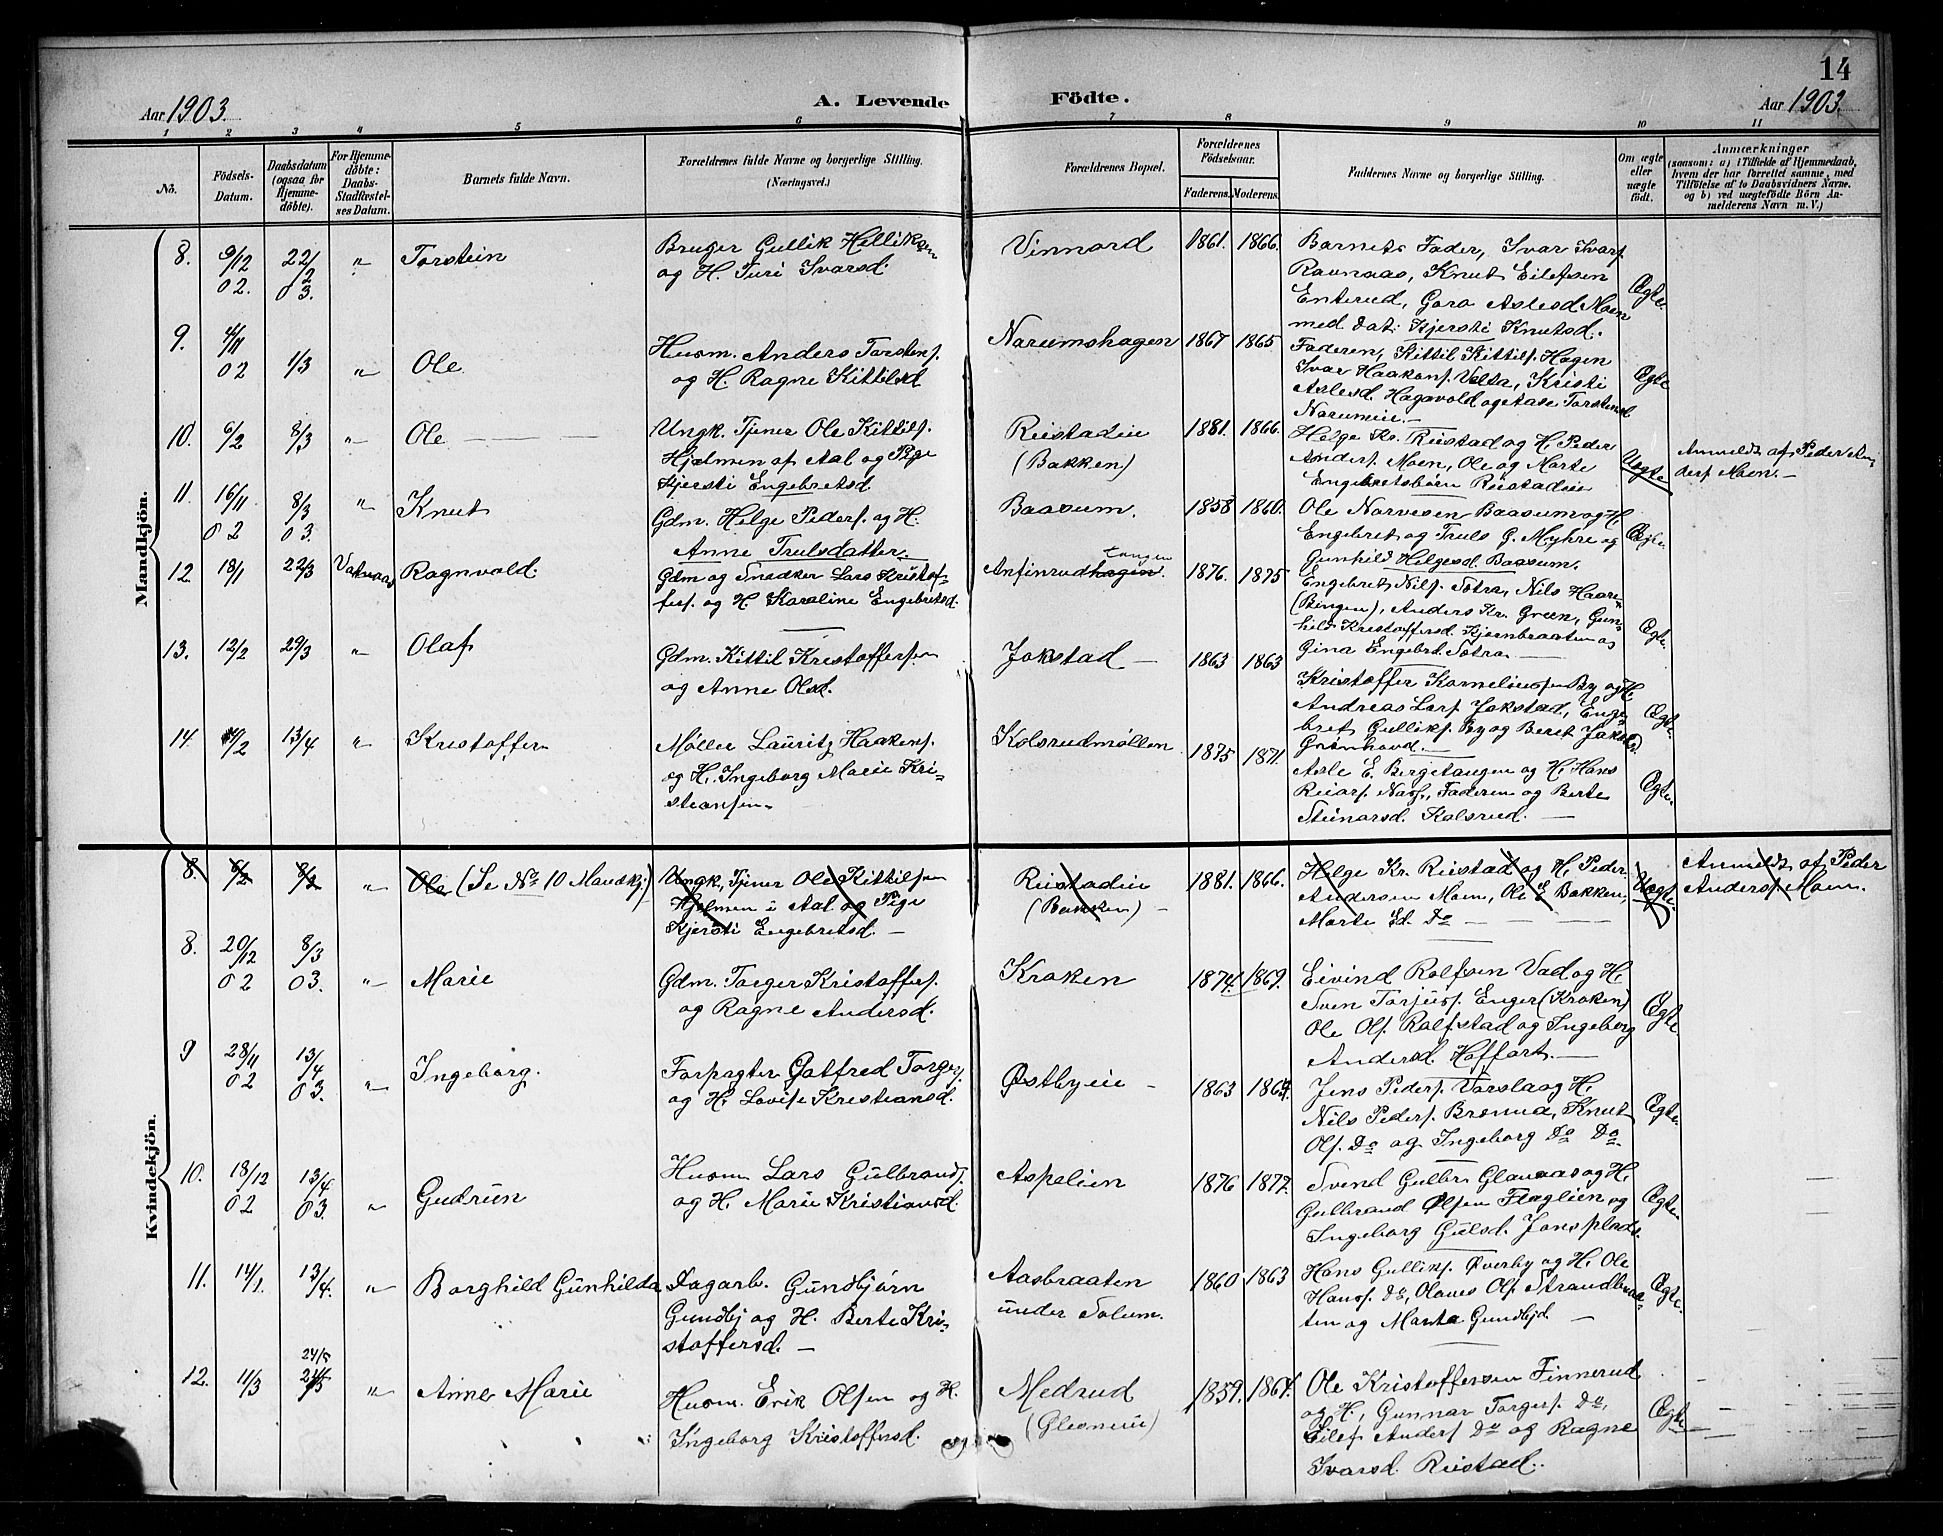 14
Aar 1903.
A. Levende Födte.
Aar 1903.
1 2 3 4 5 6 7 8 9 10 11
No.
Födsels-Datum.
Daabsdatum (ogsaa for Hjemmedöbte).
For Hjemmedöbte: Daabs-Stadfæstelses Datum.
Barnets fulde Navn.
Forældrenes fulde Navne og borgerlige Stilling.
(Næringsvei.)
Forældrenes Bopæl.
Forældrenes Födselsaar.
Faderens. Moderens.
Faddernes Navne og borgerlige Stilling.
Om ægte eller uægte födt.
Anmærkninger
(saasom: a) i Tilfælde af Hjemmedaab,
hvem der har forrettet samme, med
Tilföielse af to Daabsvidners Navne,
og b) ved uægtefödte Börn Anmelderens Navn m. V.)
Mandkjön.
8. 9/12 02. 22/2 03. " Torstein
Bruger Gullik Helliksen
og H. Turi Ivarsd.
Vinnord 1861. 1866.
Barnets Fader, Ivar Ivars.
Ravnaas, Knut Eilefsen
Enterud, Goro Aslesd Moen
med dat. Kjersti Knutsd.
Ægte.
9. 4/11 02 1/3 " Ole
Husm. Anders Torstens.
og H. Ragne Kittilsd
Narumshagen 1867 1865
Faderen, Kittil Kittils. Hagen
Ivar Haakens. Velta, Kristi
Aslesd. Hagavold og Aase Torstensd
Narumeie
Ægte
10. 6/2 8/3 " Ole
Ungk. Tjener Ole Kittils.
Hjælmen af Aal og Pige
Kjersti Engebretsd.
Riistadeie
(Bakken)
1881. 1866.
Helge Kr. Riistad og H. Peder
Anders. Moen, Ole og Marte
Engebretsbörn Riistadeie
Uægte
Anmeldt af Peder Anders Moen.
11. 16/11 02 8/3 03. " Knut
Gdm. Helge Peders. og H.
Anne Trulsdatter.
Baasum. 1858 1860.
Ole Narvesen Baasum og H.
Engebret og Truls G. Myhre og
Gunhild Helgesd. Baasum.
Ægte.
12. 18/1 22/3 Vaknaas Ragnvald.
Gdm og Snedker Lars Kristoffers. og H. Karaline Engebretsd.
Anfinrudhagen. tangen
1876. 1875
Engebret Nils. Sotra, Nils Haaren
(Bingen), Anders Kr. Green, Gunhild Kristoffersd. Kjernbraaten og
Gina Engebrd. Sotra
Ægte.
13. 12/2 29/3 " Olaf
Gdm. Kittil Kristoffersen
og Anne Olsd.
Jokstad 1863 1863
Kristoffer Korneliussen By og H.
Andreas Lars. Jokstad, Engebret Gulliks. By og Beret Jokst.
Grönhovd.
Ægte.
14. 4/2 13/4 " Kristoffer
Møller Lauritz Haakens.
og H. Ingeborg Marie Kristiansen
Kolsrudmøllen 1875 1871.
Asle E. Bergetangen og H. Hans
Reiars. Nass, Faderen og Berte
Steinarsd. Kolsrud.
Ægte.
Kvindekjön.
8 6/2 8/3 " Ole (Se No 10 Mandkj.)
Ungk., Tjener Ole Kittilsen
Hjelmen i Aal og Pige
Kjersti Engebretsd.
Riistadeie
(Bakken)
1881. 1866.
Helge Kr. Riistad og H. Peder
Andersen Moen, Ole E. Bakken,
Marte Ed. Do
Uægte.
Anmeldt af Peder
Anders. Moen.
8. 20/12 02 8/3 03. " Marie
Gdm. Torger Kristoffers.
og Ragne Andersd.
Kroken 1874. 1869.
Eivind Rolfsen Vad og H.
Sven Torjus. Enger (Kroken)
Ole Ols. Rolfstad og Ingeborg
Andersd. Hoffart.
Ægte.
9 28/11 02 13/4 03. " Ingeborg.
Forpagter Gotfred Torgers.
og H. Lovise Kristiansd.
Østbyeie 1863 1864.
Jens Peders. Vorsla og H.
Nils Peders. Brenud, Knut
Ols. Do og Ingeborg Do Do.
Ægte.
10. 18/12 02 13/4 03. " Gudrun
Husm Lars Gulbrands.
og H. Marie Kristiansd.
Aspelien 1876 1877.
Svend Gulbr. Glanaas og H.
Gulbrand Olsen Flaglien og
Ingeborg Gulsd. Jonsplads.
Ægte.
11. 14/1. 13/4. " Borghild Gunhilda
Dagarb. Gundbjørn
Gundbj og H. Berte Kristoffersd.
Aasbraaten
under Solum.
1860 1863
Hans Gulliks. Øverby og H. Ole
Hans. Do, Olaves Ols. Strandbraaten og Marta Gundbjd.
Ægte.
12. 11/3 24/5 " Anne Marie
Husm. Erik Olsen og H.
Ingeborg Kristoffersd.
Medrud
1859. 1864.
Ole Kristoffersen Finnerud
og H., Gunnar Torgers. Do,
Eilef Anders. Do og Ragne
Ivarsd. Riistad.
Ægte.